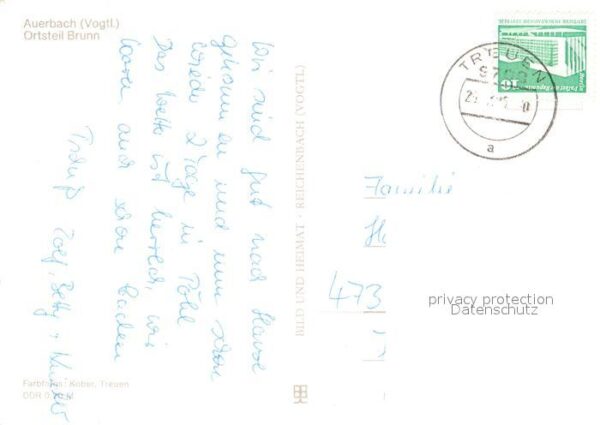 Auerbach (Vogtl.)
Ortsteil Brunn
Wir sind gut nach Hause
gekommen und nun schon
wieder 2 Tage in Pöhl
Das Wetter ist herrlich, wir
waren auch schon baden
Rolf, Betty
BILD UND HEIMAT · REICHENBACH (VOGTL.)
Farbfotos: Kober, Treuen
DDR
TREUEN
a
10
Familie
473
privacy protection
Datenschutz